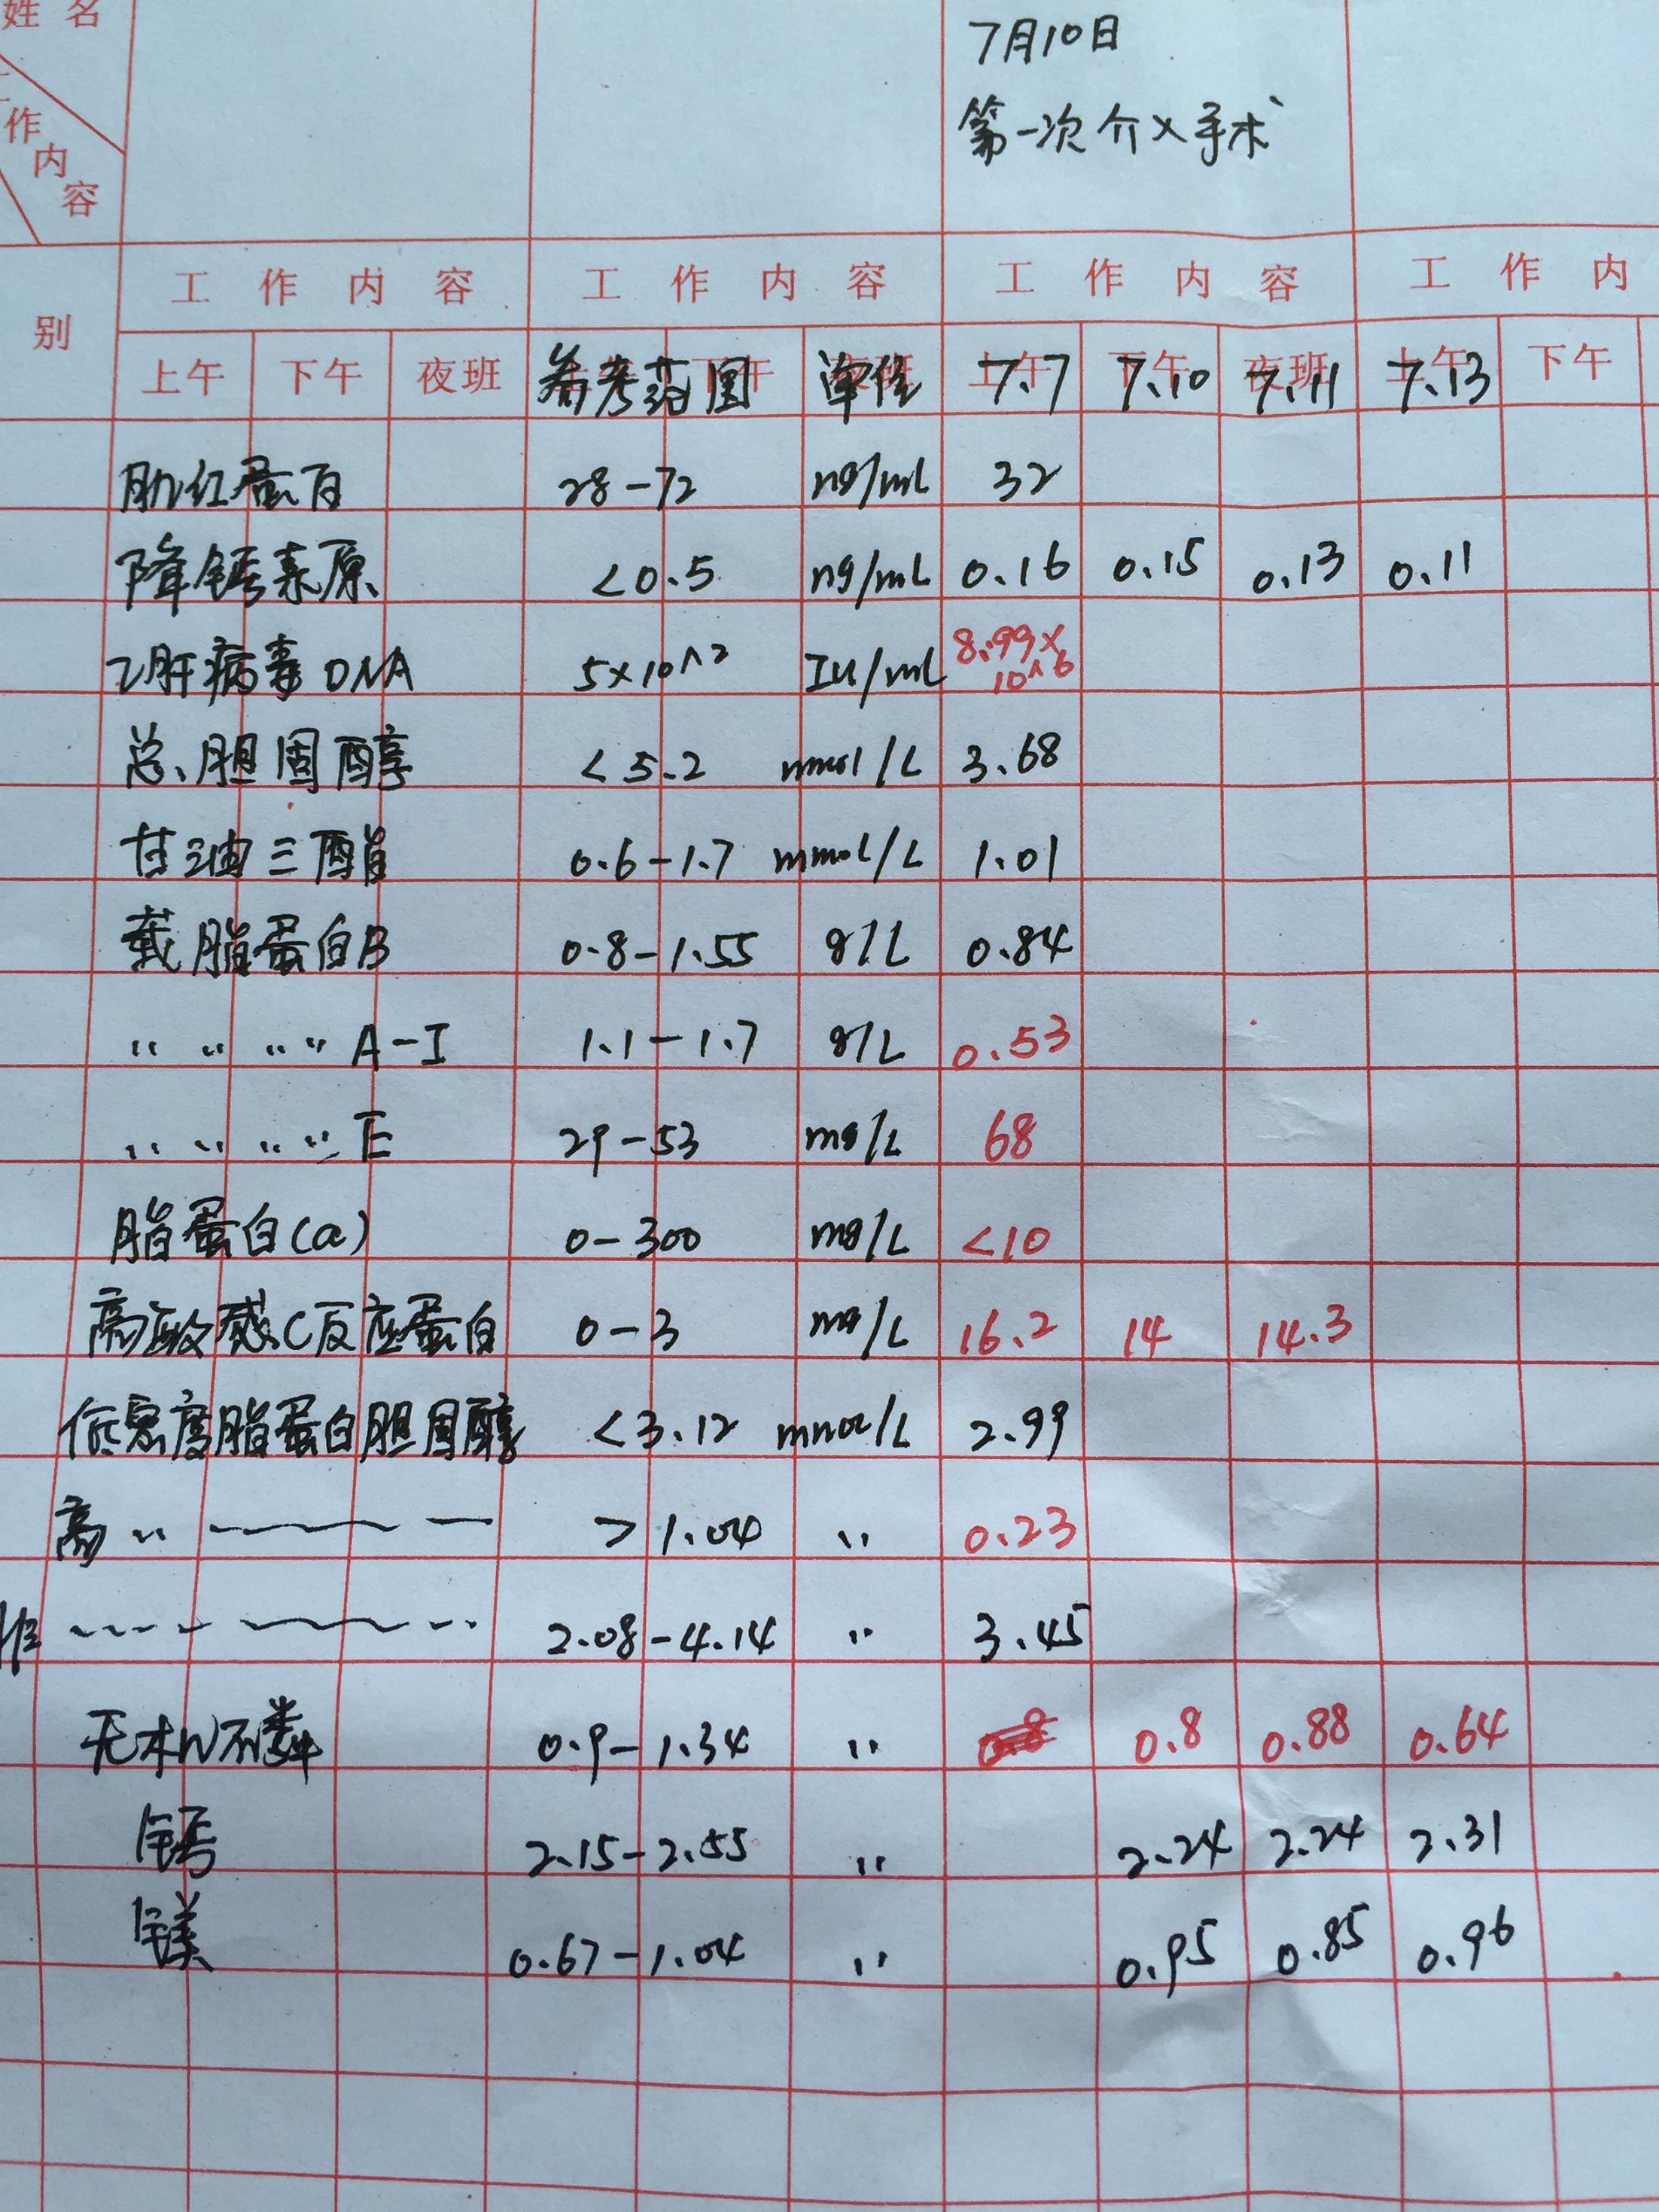 姓名
7月10日
第一次介入手术
作内容
工作内容 工作内容 工作内容 工作内
别
上午 下午 夜班 参考范围 单位 7.7 7.10 7.11 7.13 下午
肌红蛋白 28-72 ng/mL 32
降钙素原 <0.5 ng/mL 0.16 0.15 0.13 0.11
乙肝病毒DNA 5×10^2 IU/mL 8.99×10^6
总胆固醇 <5.2 mmol/L 3.68
甘油三酯 0.6-1.7 mmol/L 1.01
载脂蛋白B 0.8-1.55 g/L 0.84
〃 〃 〃 〃 A-I 1.1-1.7 g/L 0.53
〃 〃 〃 〃 E 29-53 mg/L 68
脂蛋白(a) 0-300 mg/L <10
高敏感C反应蛋白 0-3 mg/L 16.2 14 14.3
低密度脂蛋白胆固醇 <3.12 mmol/L 2.99
高 〃 >1.04 〃 0.23
2.08-4.14 〃 3.45
无机磷 0.9-1.34 〃 0.8 0.88 0.64
钙 2.15-2.55 〃 2.24 2.24 2.31
镁 0.67-1.04 〃 0.95 0.85 0.96